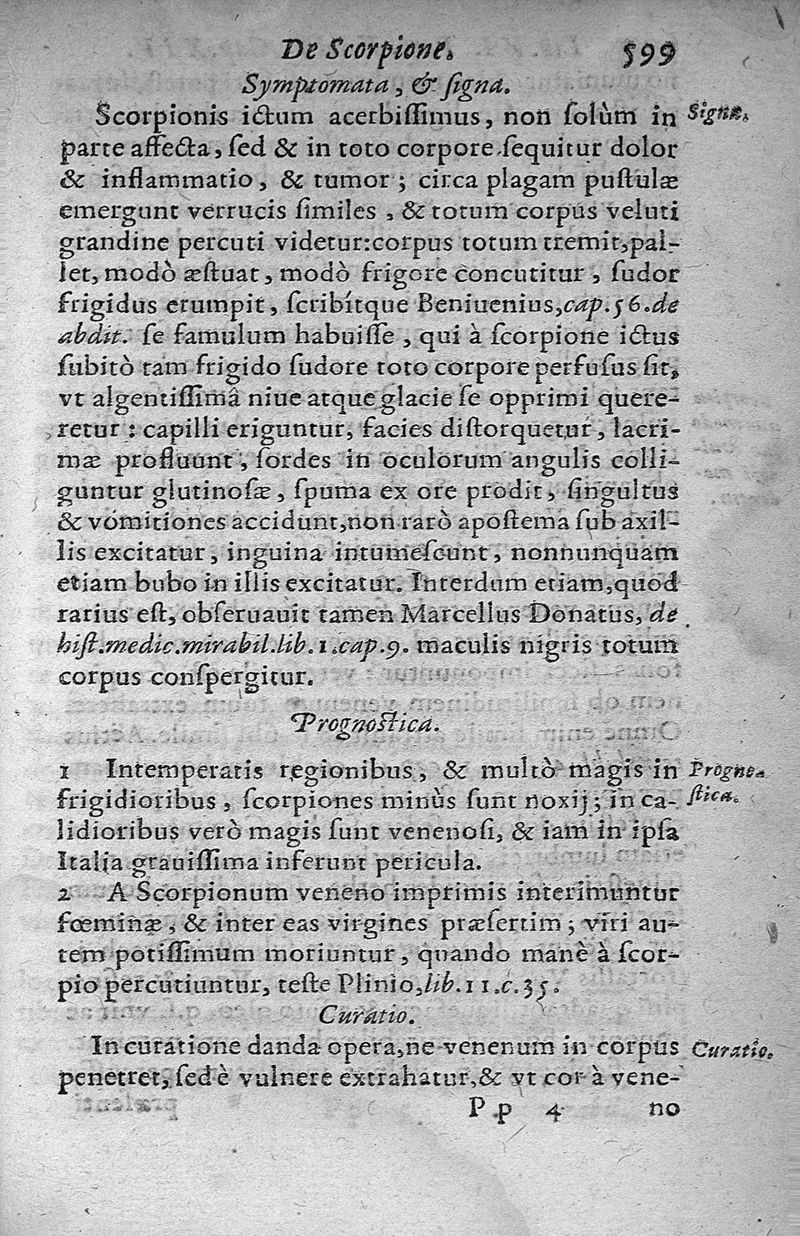 De Scorpione. 599
Symptomata, & ſigna.
Scorpionis ictum acerbiſſimus, non ſolùm in Signa.
parte affecta, ſed & in toto corpore ſequitur dolor
& inflammatio, & tumor; circa plagam puſtulæ
emergunt verrucis ſimiles, & totum corpus veluti
grandine percuti videtur: corpus totum tremit, pal-
let, modò æſtuat, modò frigore concutitur, ſudor
frigidus erumpit, ſcribítque Beniuenius, cap. 56. de
abdit. ſe famulum habuiſſe, qui à ſcorpione ictus
ſubitò tam frigido ſudore toto corpore perfuſus ſit,
vt algentiſſimâ niue atque glacie ſe opprimi quere-
retur: capilli eriguntur, facies diſtorquetur, lacri-
mæ profluunt, ſordes in oculorum angulis colli-
guntur glutinoſæ, ſpuma ex ore prodit, ſingultus
& vomitiones accidunt, non rarò apoſtema ſub axil-
lis excitatur, inguina intumeſcunt, nonnunquam
etiam bubo in illis excitatur. Interdum etiam, quod
rarius eſt, obſeruauit tamen Marcellus Donatus, de
hiſt. medic. mirabil. lib. 1. cap. 9. maculis nigris totum
corpus conſpergitur.
Prognostica.
1 Intemperatis regionibus, & multò magis in Progno-
frigidioribus, ſcorpiones minùs ſunt noxij; in ca- ſtica.
lidioribus verò magis ſunt venenoſi, & iam in ipſa
Italia grauiſſima inferunt pericula.
2 A Scorpionum veneno imprimis interimuntur
fœminæ, & inter eas virgines præſertim; viri au-
tem potiſſimum moriuntur, quando manè à ſcor-
pio percutiuntur, teſte Plinio, lib. 11. c. 35.
Curatio.
In curatione danda opera, ne venenum in corpus Curatio.
penetret, ſed è vulnere extrahatur, & vt cor à vene-
P p 4 no